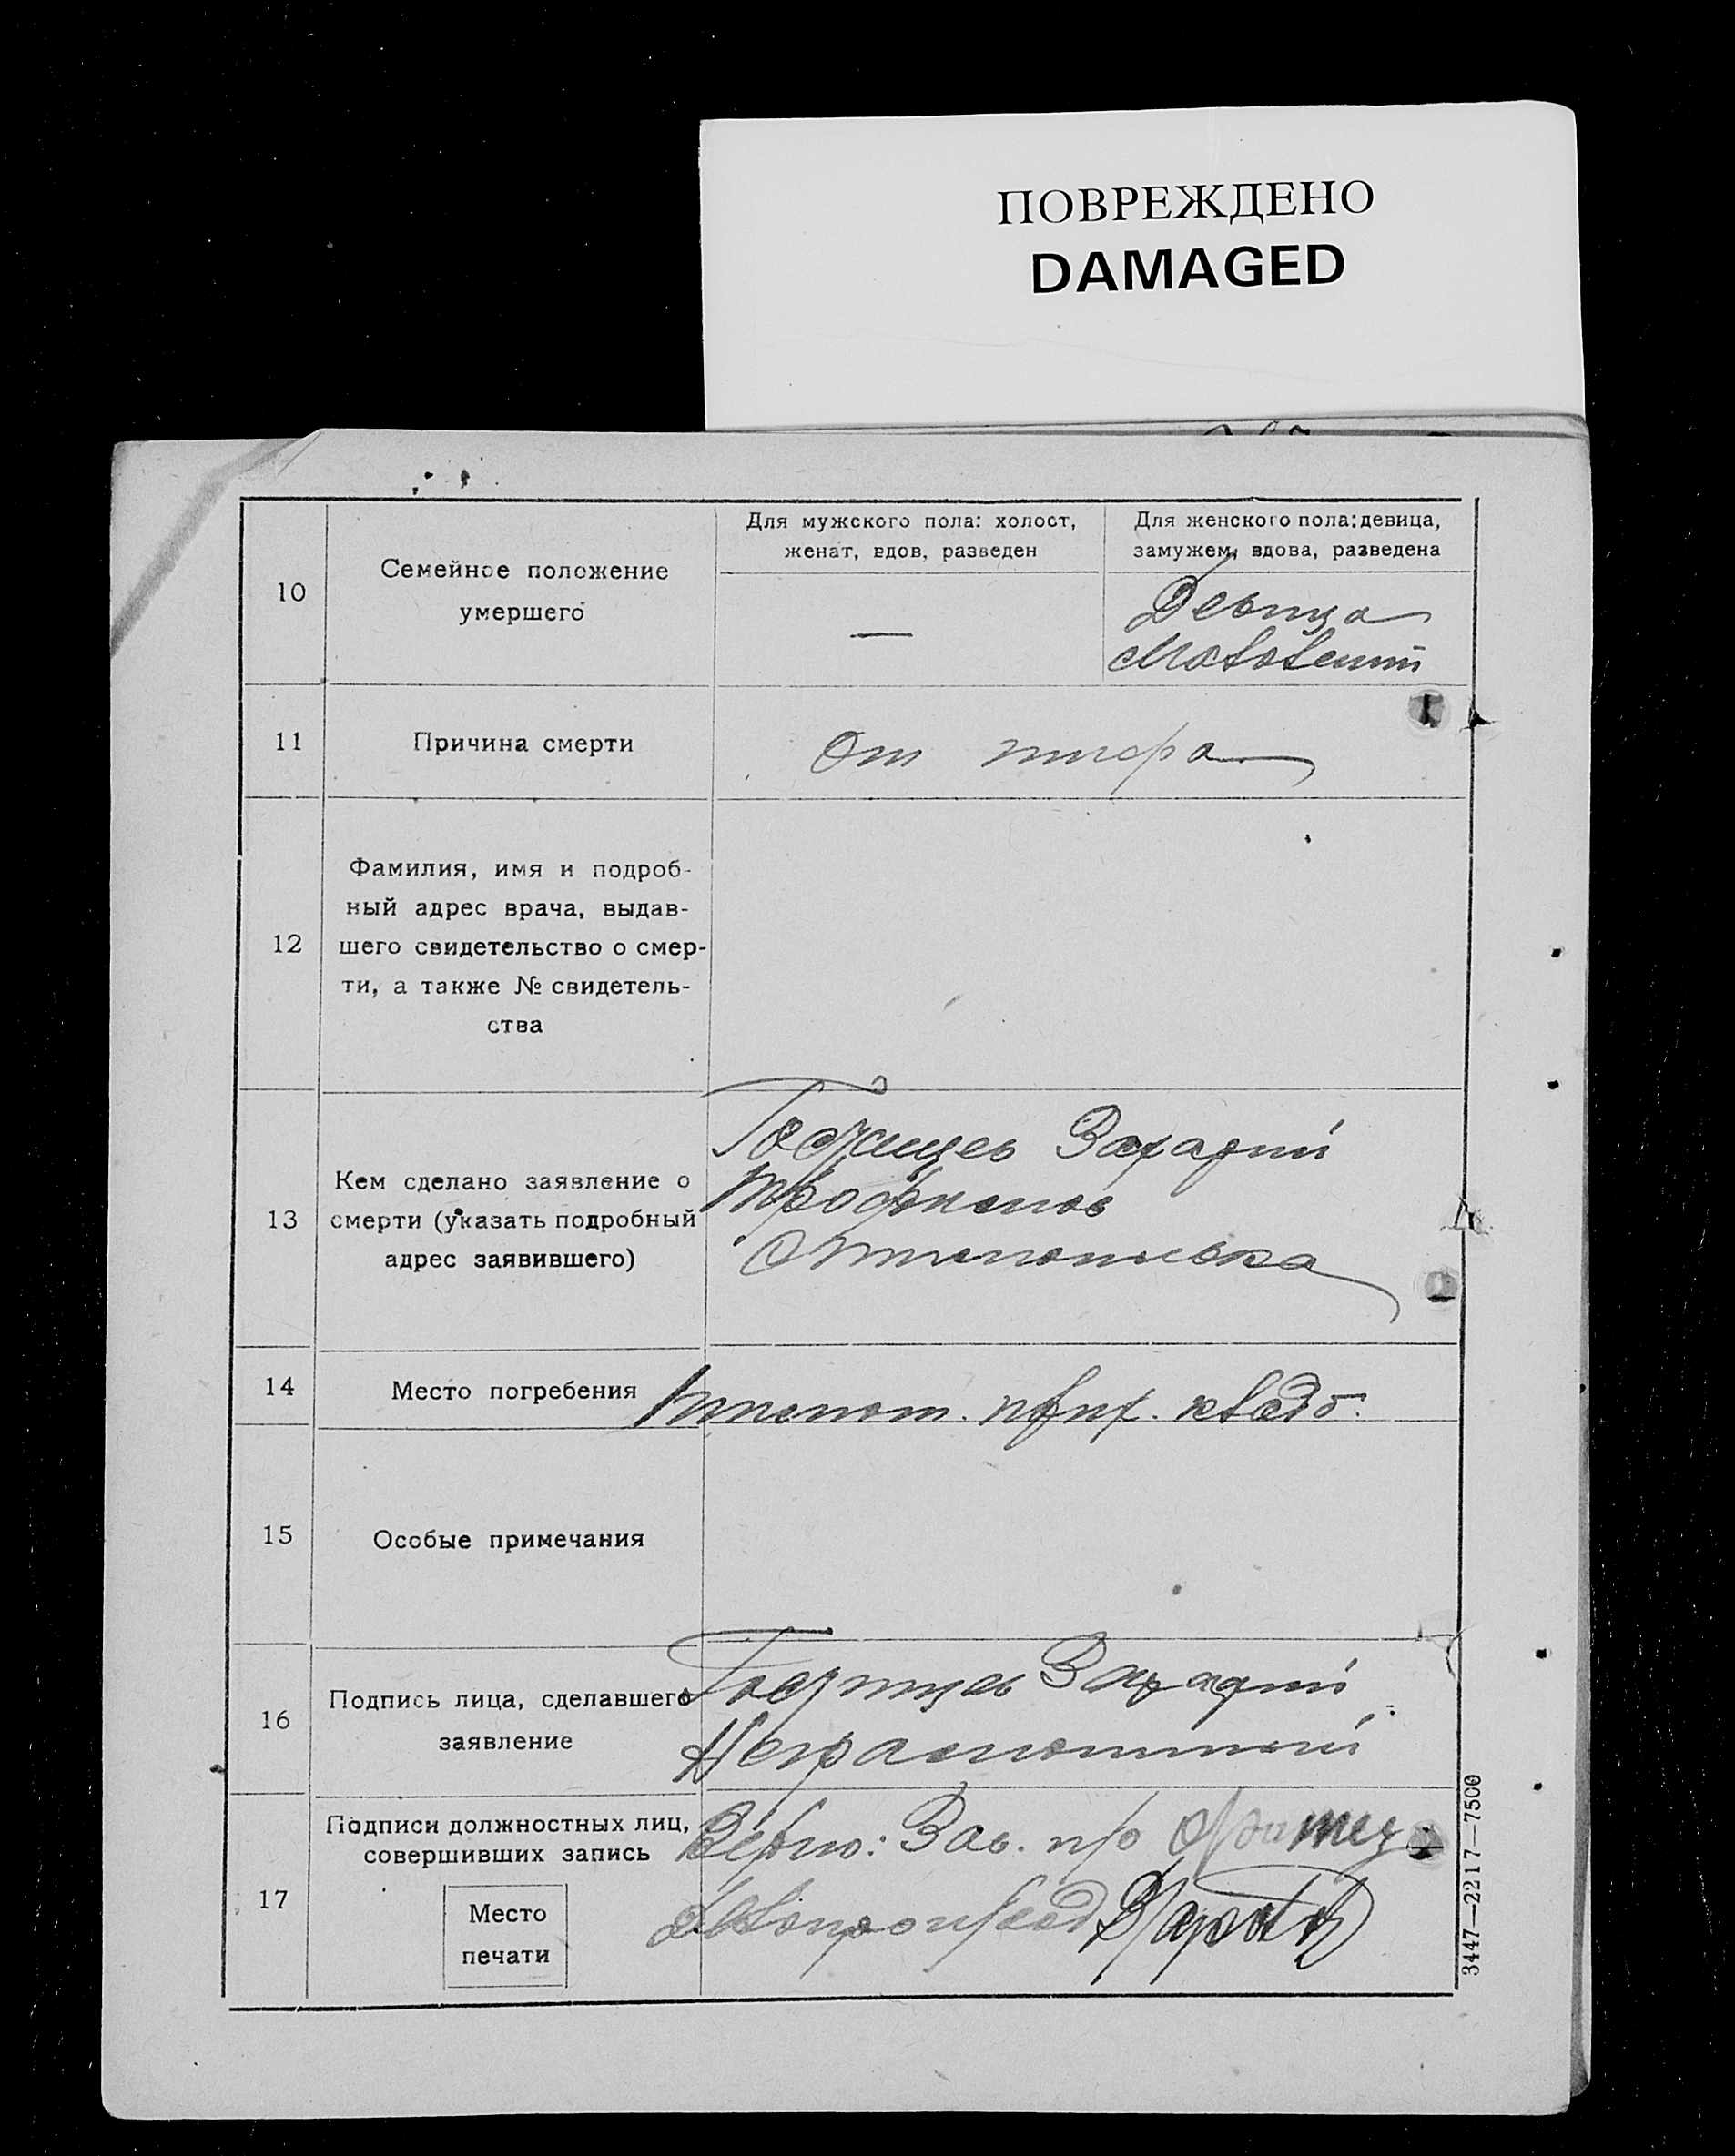 ПОВРЕЖДЕНО
DAMAGED
10
Семейное положение
умершего
Для мужского пола: холост,
женат, вдов, разведен
—
Для женского пола: девица,
замужем, вдова, разведена
Девица
11
Причина смерти
От тифа
12
Фамилия, имя и подроб-
ный адрес врача, выдав-
шего свидетельство о смер-
ти, а также № свидетель-
ства
13
Кем сделано заявление о
смерти (указать подробный
адрес заявившего)
Захарий
14
Место погребения
кладб.
15
Особые примечания
16
Подпись лица, сделавшего
заявление
Захарий
Неграмотный
17
Подписи должностных лиц,
совершивших запись
Место
печати
Верно: Зав. п/о
3447—2217—7500